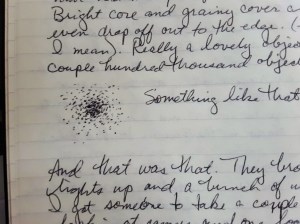 Bright core and grainy cover
even drop off out to the edge. (
I mean). Really a lovely objec
couple hundred thousand objec
Something like that
And that was that. They bro
lights up and a bunch of
I got someone to take a couple